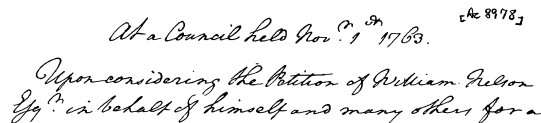 [Ac 8978]
At a Council held Nov.r 1st 1763.
Upon considering the Petition of William Nelson
Esq.r in behalf of himself and many others for a